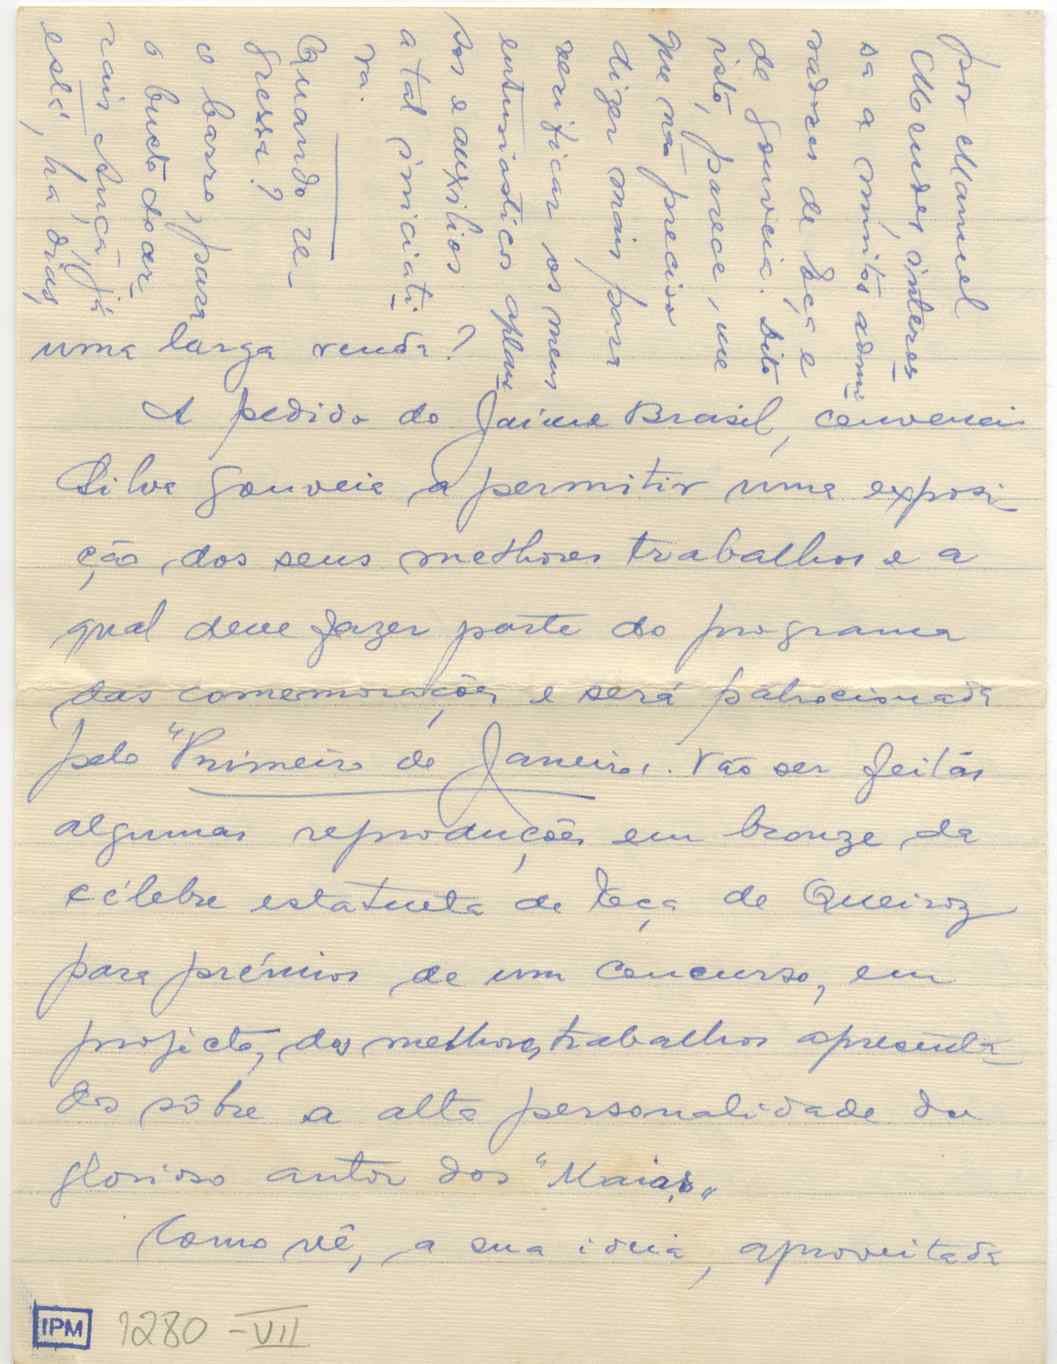 uma larga venda?
A pedido do Jaime Brasil, convenci
Silva Gouveia a permitir uma exposi-
ção dos seus melhores trabalhos e a
qual deve fazer parte do programa
das comemorações e será patrocionada
pelo "Primeiro de Janeiro". Vão ser feitas
algumas reproduções em bronze da
célebre estatueta de Eça de Queiroz
para prémios de um concurso, em
projecto, dos melhores trabalhos apresenta-
dos sôbre a alta personalidade do
glorioso autor dos "Maias"
Como vê, a sua ideia, aproveitada
por Manuel
Mendes, interes-
sa a muitos admi-
radores de Eça e
de Gouveia. Dito
isto, parece-me
que não preciso
dizer mais para
verificar os meus
entusiásticos aplau-
sos e auxílios
a tal iniciati-
va.
Quando re-
gressa?
o barro, para
o busto do ar-
rais Ançã, já
está, há dias,
IPM
1280-VII